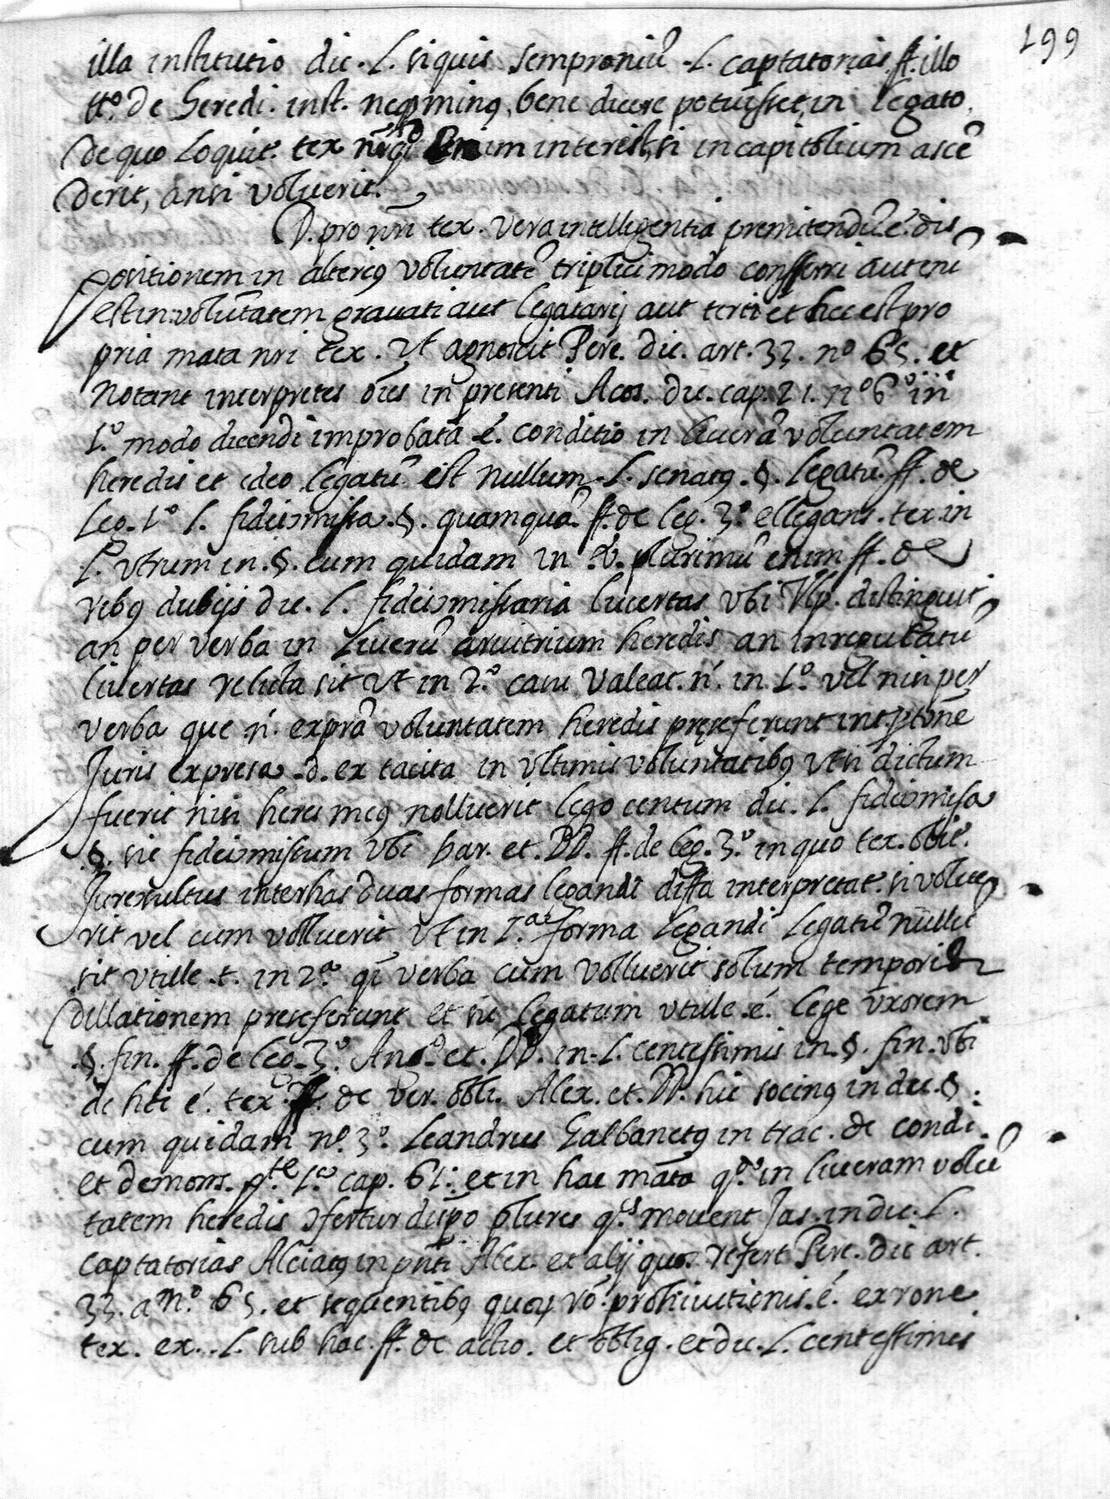 199
illa institutio dic. L. si quis semproniũ L. captatorias ff. illo
tt.º de heredi. inst. neq minus, bene dicere potuisset, in legato
de quo loquit. tex enim interest, si in capitolium ascẽ
derit, an si voluerit.
D. pro nri tex. vera intelligentia premitendũ é. dis
positionem in alterius voluntatẽ triplici modo conferri aut eni
est in voluntatem gravati aut legatarij aut tertii et hec est pro
pria mata nri tex. ut agnoscit Pere. dic. art. 33. nº 65. et
notant interpretes oẽs in presenti Acos. dic. cap. 21. nº 6º in
1.º modo dicendi improbata é. conditio in liverã voluntatem
heredis et ideo legatũ est nullum L. senatus .§. legatũ ff. de
Leg. 1º l. fideicomissa .§. quamquã ff. de leg. 3º ellegans. tex. in
L. utrum in .§. cum quidam in v. plurimũ enim ff. de
rebus dubijs dic. l. fideicomissaria livertas ubi Ulp. distinguit
an per verba in liverũ arvitrium heredis an in reputatũ
livertas relicta sit ut in 2.º casu valeat. ñ. in 1.º vel nisi per
verba que ñ. exprã voluntatem heredis preseferunt
Juris expresa d. ex tacita in ultimis voluntatibus uti si dictum
fuerit nisi heres meus nolluerit lego centum dic. l. fideicomisa
§. sic fideicomissum ubi bar. et. DD. ff. de leg. 3.º in quo tex. obie.
Jureconsultus inter has duas formas legandi diffa interpretat. si volue
rit vel cum volluerit ut in 1.ª forma legandi legatũ nullũ
sit utille t. in 2.ª qi verba cum volluerit solum temporis
dillationem preseferunt et sic legatum utille é. lege uxorem
.§. fin. ff. de leg. 3.º Ang.º et. DD. in L. centessimis in .§. fin. ubi
de hoc é. tex. ff. de ver. obli. Alex. et. DD. hic socinus in dic. §.
cum quidam nº. 3º. Leandrus Galbanetus in trac. de condi.
et demons. p.te 1.º cap. 61: et in hac mata q.º in liveram volũ
tatem heredis ↄfertur dispo plures q.s movent Jas. in dic. L.
captatorias Alciatus in pnti Alex et alij quos refert Pere. dic art.
33. a nº 65. et sequentibus quoq rõ. prohivitionis. é. ex rone
tex. ex. L. sub hac. ff. de actio. et oblig. et dic. L. centessimis